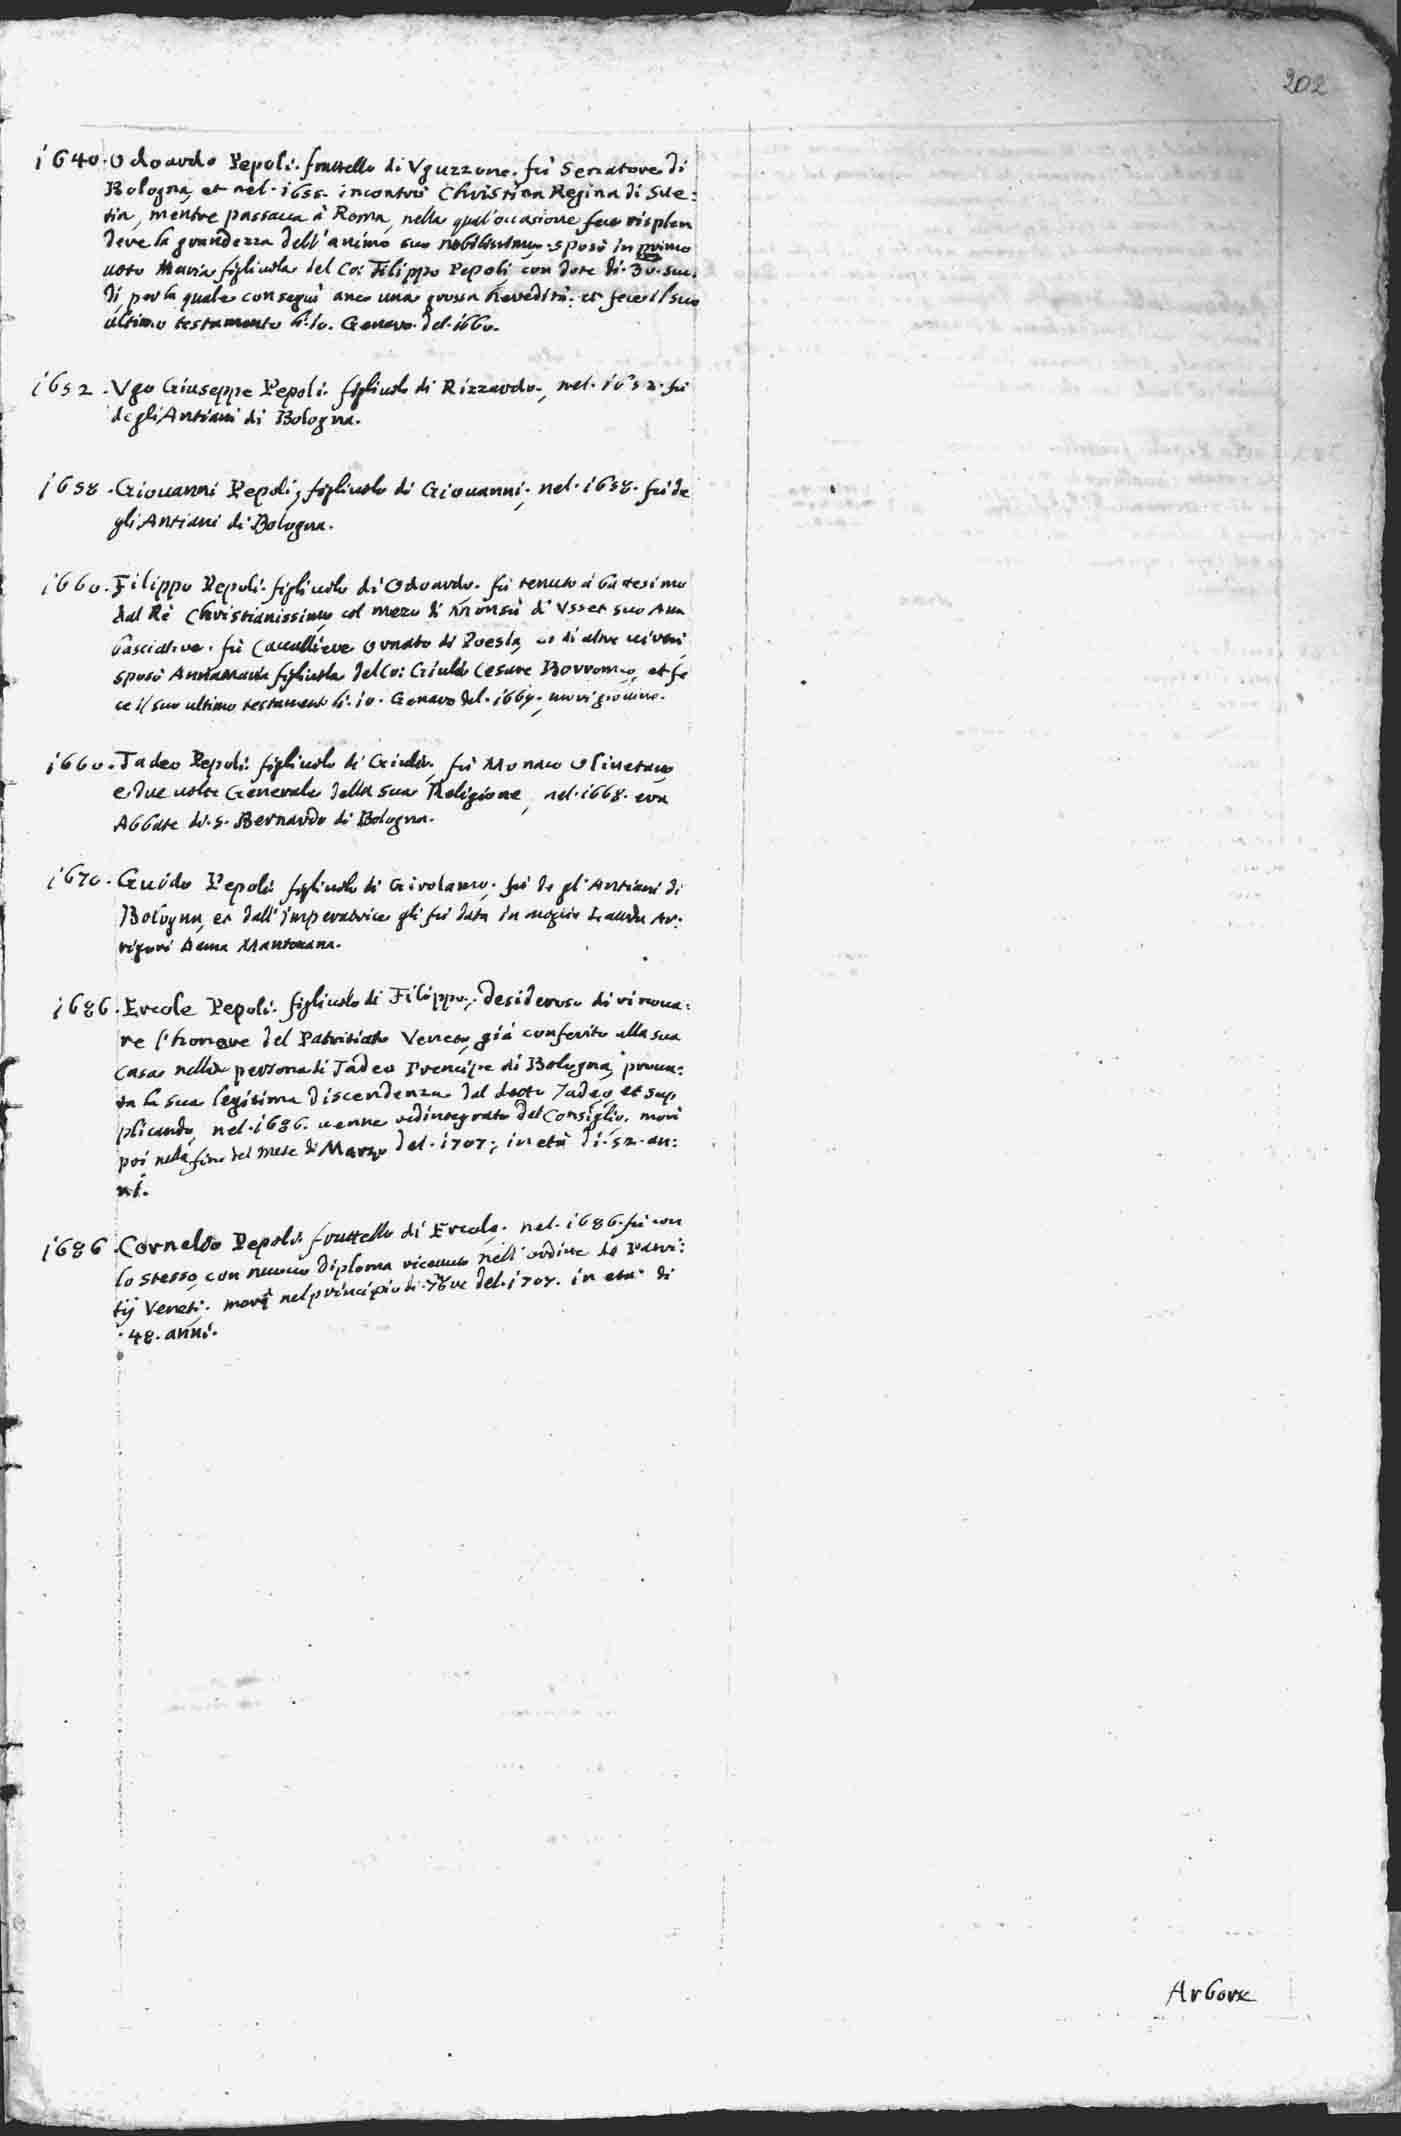 202
1640. Odoardo Pepoli. frattello di Vguzzone. fù Senatore di
Bologna, et nel. 1655. incontrò Christina Regina di Sue:
tia, mentre passaua à Roma, nella qual'occasione fece risplen
dere la grandezza dell'animo suo nobilissimo. sposò in primo
uoto Maria figliuola del Co: Filippo Pepoli, con dote di. 30. scu.
di, per la quale conseguì anco una grossa heredità: et fece il suo
ultimo testamento li. 10. Genaro. del. 1660.
1652. Vgo Giuseppe Pepoli. figliuolo di Rizzardo., nel. 1652. fù
degli Antiani di Bologna.
1658. Giouanni Pepoli, figliuolo di Giouanni., nel. 1658. fù de
gli Antiani di Bologna.
1660. Filippo Pepoli. figliuolo di Odoardo. fù tenuto à batesimo
dal Rè Christianissimo, col mezo di Monsù d'Vsset suo Am
basciatore. fù Caualliere ornato di Poesia, et di altre uirtù,
sposò Annamaria figliuola del Co: Giulio Cesare Borromeo, et fe
ce il suo ultimo testamento li. 10. Genaro del. 1669., morì giouine.
1660. Tadeo Pepoli. figliuolo di Giulio. fù Monaco Oliuetano,
e due uolte Generale della sua Religione, nel. 1668. era
Abbate di. S. Bernardo di Bologna.
1670. Guido Pepoli figliuolo di Girolamo. fù de gl'Antiani di
Bologna, et dall'Imperatrice gli fù data in moglie Laura Ar:
rigori Dama Mantouana.
1686. Ercole Pepoli. figliuolo di Filippo., desideroso di rinoua:
re l'honore del Patritiato Veneto, già conferito alla sua
Casa nella persona di Tadeo Prencipe di Bologna, proua:
ta la sua legitima discendenza dal detto Tadeo, et sup
plicando, nel. 1686. uenne redintegrato del Consiglio. morì
poi nella fine del mese di Marzo del. 1707., in età di. 52. an:
ni.
1686. Cornelio Pepoli frattello di Ercole. nel. 1686. fù con
lo stesso, con nuouo diploma riceuuto nell'ordine de Patri:
tij Veneti. morì nel principio di. 7bre del. 1707. in età di
. 48. anni.
Arbore